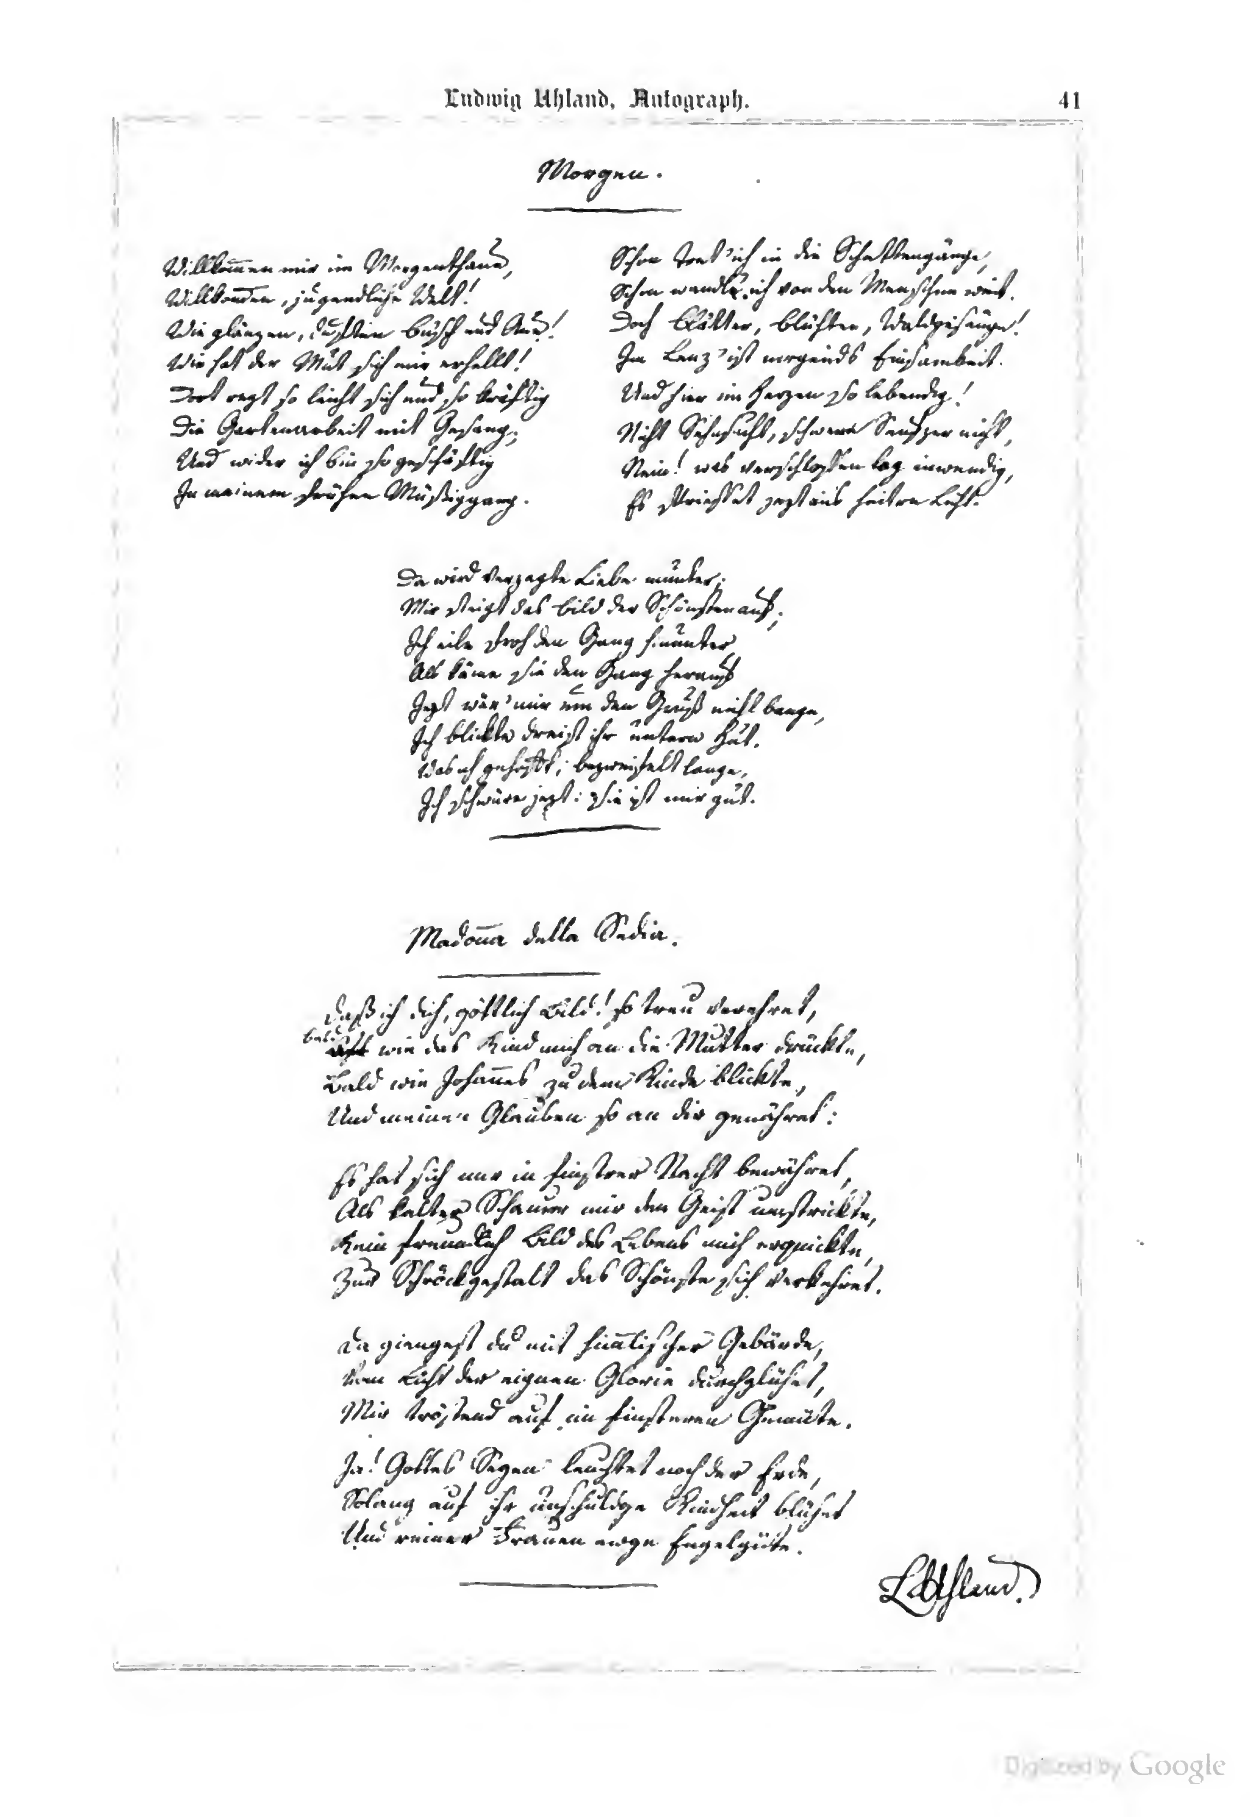 Ludwig Uhland, Autograph.
41
Morgen.
Willkom̅en mir im Morgenthaue,
Willkommen, jugendliche Welt!
Wie glänzen, duften Busch und Aue!
Wie hat der Mut sich mir erhellt!
Dort regt so leicht sich und so kräftig
Die Gartenarbeit mit Gesang;
Und wider ich bin so geschäftig
In meinem frühen Müßiggang.
Schon tret' ich in die Schattengänge,
Schon wandl' ich von den Menschen weit.
Doch Blätter, Blüthen, Waldgesänge!
Im Lenz ist nirgends Einsamkeit.
Und hier im Herzen so lebendig!
Nicht Sehnsucht, schwere Seufzer nicht,
Nein! was verschlossen lag inwendig,
Es sprießet jezt ans heitre Licht.
Da wird verzagte Liebe munter;
Mir steigt das Bild der Schönsten auf;
Ich eile froh den Gang hinunter
Als käme sie den Gang herauf
Jezt wär' mir um den Gruß nicht bange,
Ich blickte dreist ihr untern Hut.
Was ich gehofft, bezweifelt lange,
Ich schwüre jezt: sie ist mir gut.
Madon̅a della Sedia.
Daß ich dich, göttlich Bild! so treu verehret,
bald
wie das Kind mich an die Mutter drückte,
Bald wie Johan̅es zu dem Kinde blickte,
Und meinen Glauben so an dir genähret:
Es hat sich nur in finstrer Nacht bewähret,
Als kalter Schauer mir den Geist umstrickte,
Kein freundlich Bild des Lebens mich erquickte,
Zur Schröckgestalt das Schönste sich verkehret.
Da giengest du mit him̅lischer Gebärde,
Vom Licht der eignen Glorie durchglühet,
Mir tröstend auf im finsteren Gemüte.
Ja! Gottes Segen leuchtet noch der Erde,
Solang auf ihr unschuldge Kindheit blühet
Und reiner Frauen ewge Engelgüte.
L. Uhland.
Digitized by Google